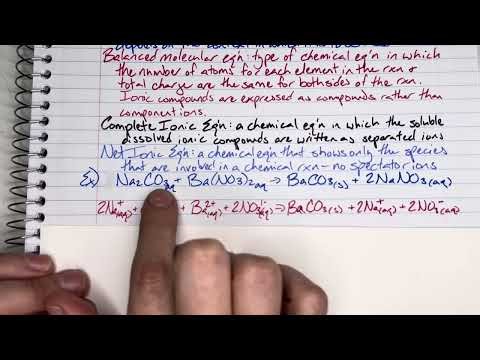 Balanced molecular eq'n: type of chemical eq'n in which
the number of atoms for each element in the rxn +
total charge are the same for both sides of the rxn.
Ionic compounds are expressed as compounds rather than
component ions.
Complete Ionic Eq'n: a chemical eq'n in which the soluble
dissolved ionic compounds are written as separated ions
Net Ionic Eq'n: a chemical eq'n that shows only the species
that are involved in a chemical rxn - no spectator ions
Ex) Na2CO3aq + Ba(NO3)2aq → BaCO3(s) + 2NaNO3(aq)
2Na+(aq) + + Ba2+(aq) + 2NO3-(aq) → BaCO3(s) + 2Na+(aq) + 2NO3-(aq)